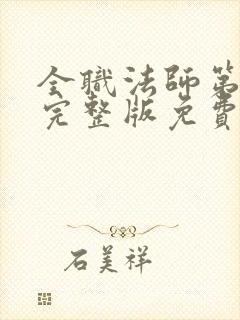 全職法師第
完整版免費
石美祥